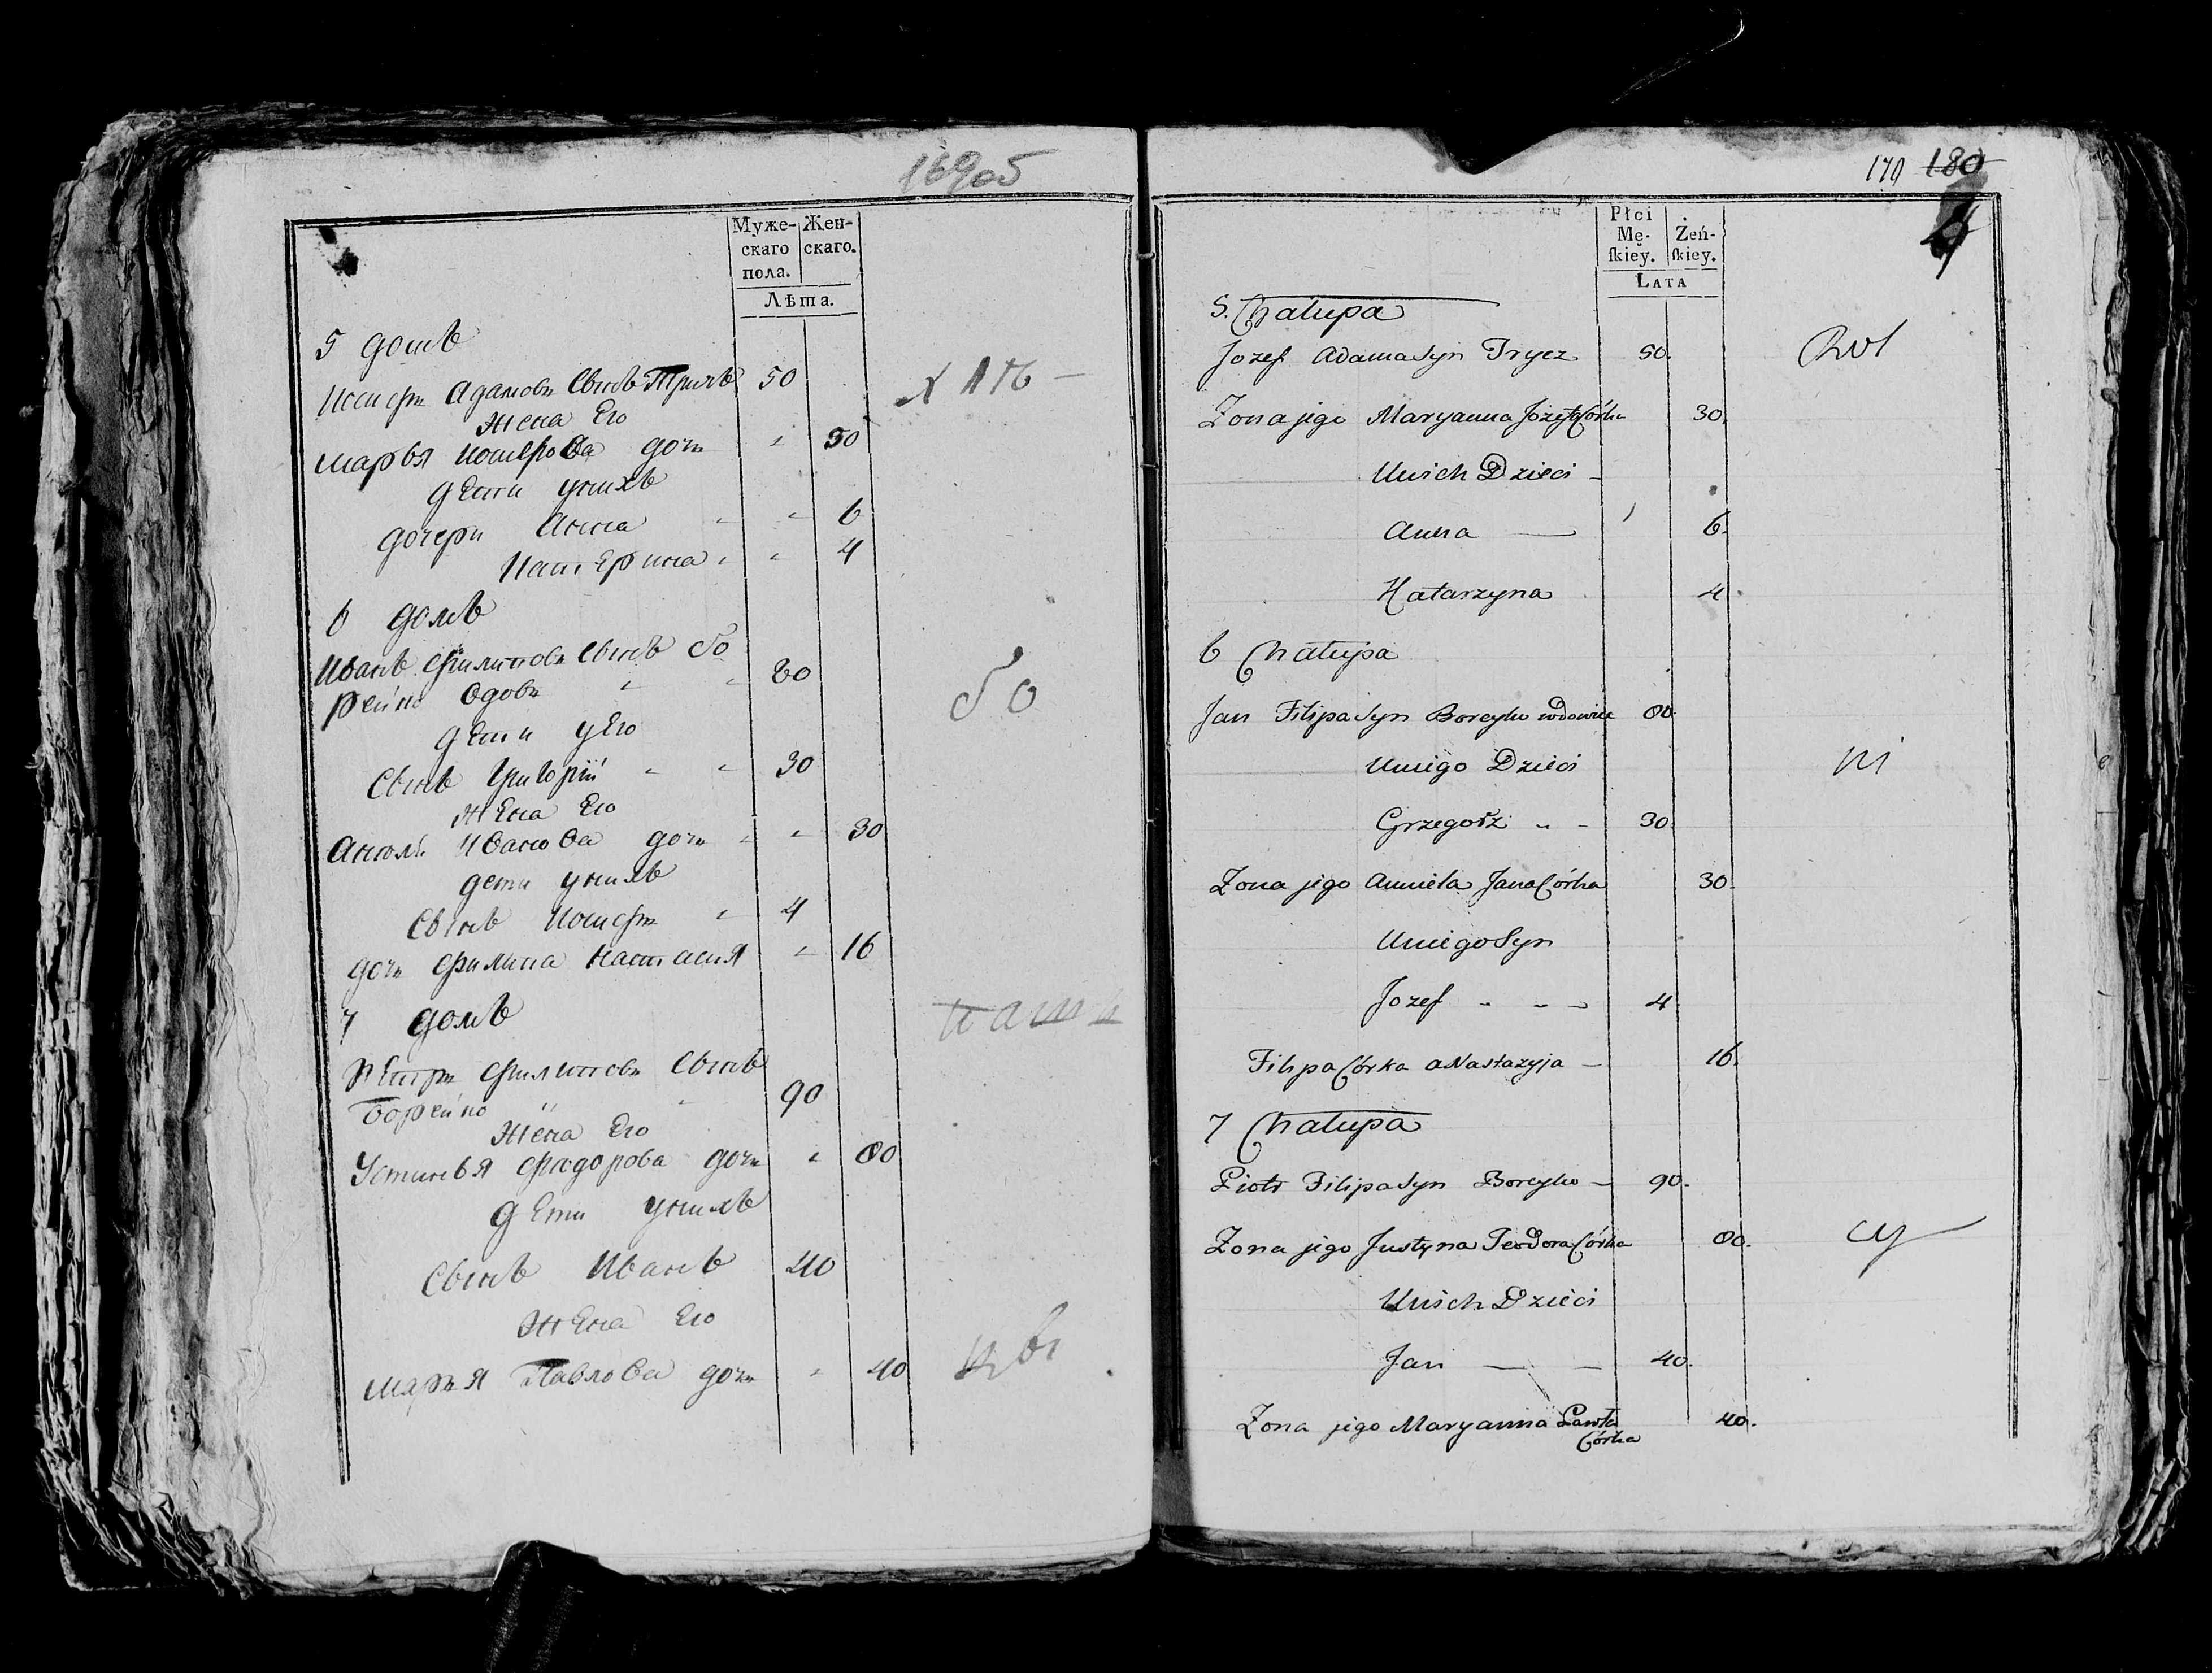 169об
Муже-
скаго
пола.
Жен-
скаго.
Лѣта.
5 домъ
Иосифъ Адамовъ Сынъ Трычъ 50
Жена Его
Марья Иосифова дочь 30
дети унихъ
дочери Анна 6
Катерина 4
6 домъ
Иванъ Филиповъ Сынъ Бо
рейко вдовъ 80
дети уЕго
Сынъ Григорій 30
Жена Его
Анюля Иванова дочь 30
дети унихъ
Сынъ Иосифъ 4
дочь Филипа Настасия 16
7 домъ
Петръ Филиповъ Сынъ
Борейко 90
Жена Его
Устинья Фіодорова дочь 80
дети унихъ
Сынъ Иванъ 40
Жена Его
Марья Павлова дочь 40
170 180
Płci
Mę-
skiey.
Żeń-
skiey.
Lata
5. Chałupa
Jozef Adama Syn Trycz 50.
Zona jego Maryanna Jozefa Córka 30.
Unich Dzieci
Anna 6.
Katarzyna 4.
6 Chałupa
Jan Filipa Syn Boreyko wdowiec 80.
Uniego Dzieci
Grzegorz 30.
Zona jego Anniela Jana Córka 30.
Uniego Syn
Jozef 4
Filipa Córka aNastazyja 16.
7 Chałupa
Piotr Filipa Syn Boreyko 90.
Zona jego Justyna Teodora Córka 80.
Unich Dzieci
Jan 40.
Zona jego Maryanna Pawła 40.
Córka